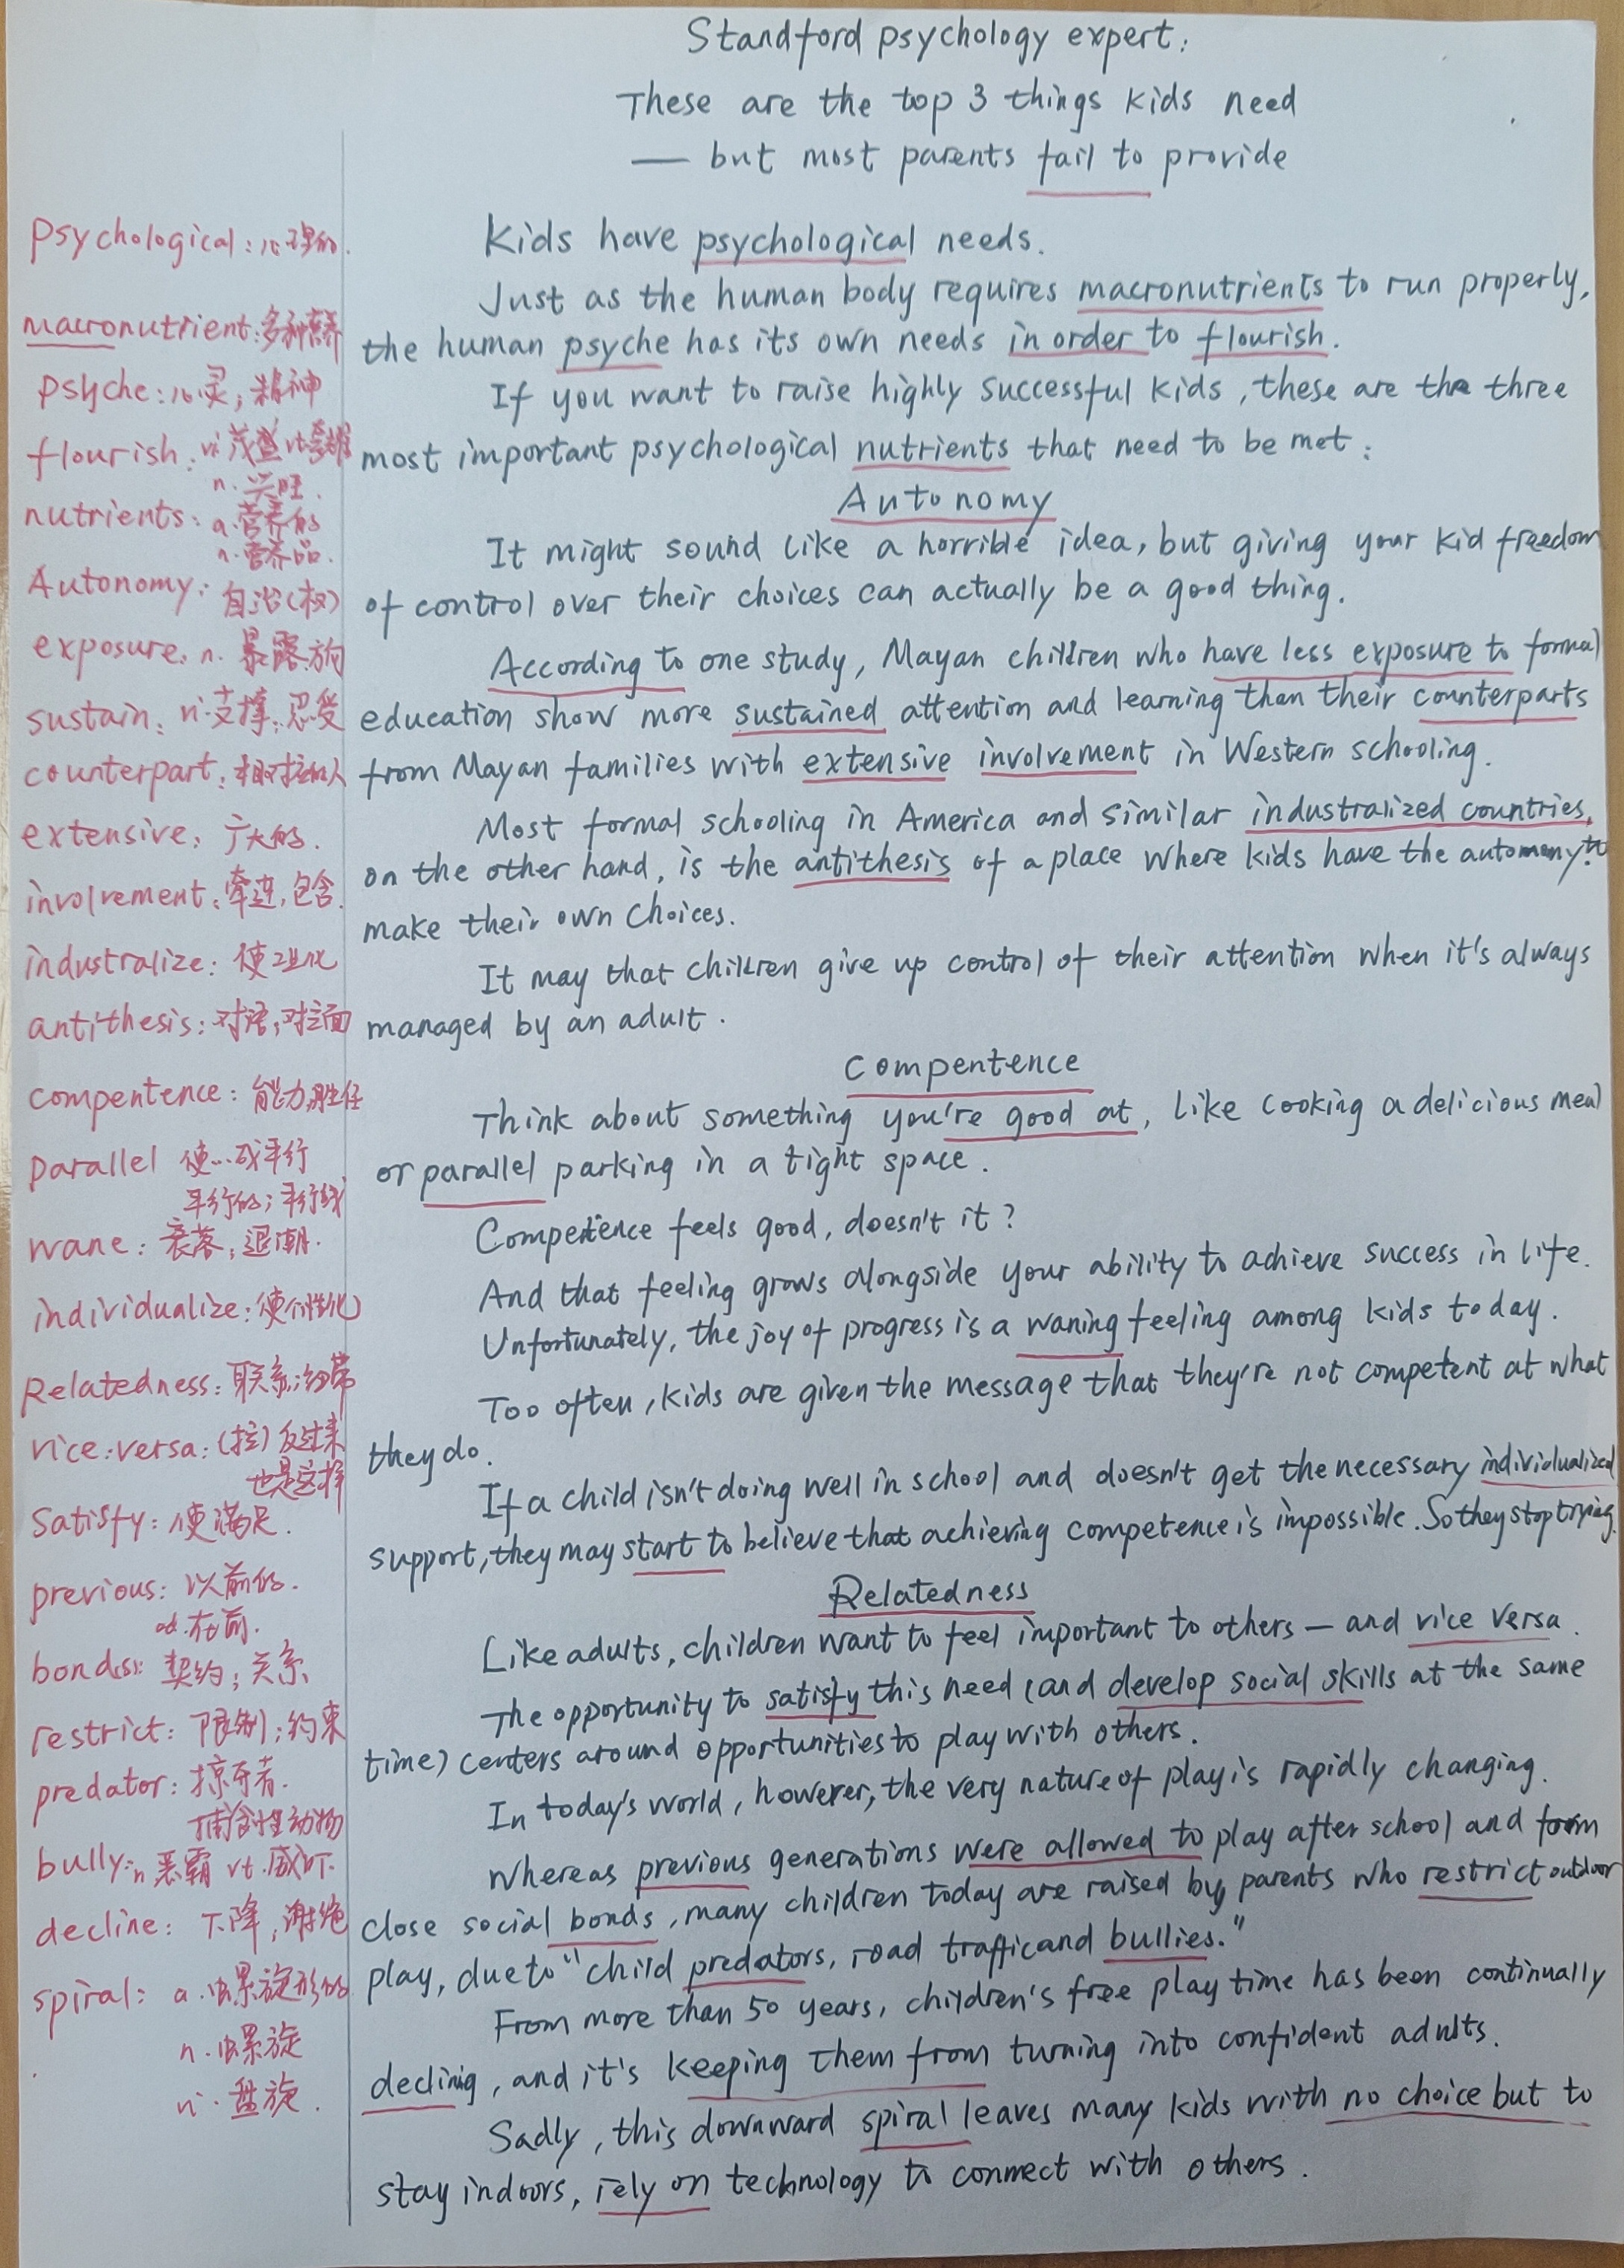 Standford psychology expert:
These are the top 3 things kids need
— but most parents fail to provide
Kids have psychological needs.
Just as the human body requires macronutrients to run properly,
the human psyche has its own needs in order to flourish.
If you want to raise highly successful kids, these are the three
most important psychological nutrients that need to be met:
Autonomy
It might sound like a horrible idea, but giving your kid freedom
of control over their choices can actually be a good thing.
According to one study, Mayan children who have less exposure to formal
education show more sustained attention and learning than their counterparts
from Mayan families with extensive involvement in Western schooling.
Most formal schooling in America and similar industralized countries,
on the other hand, is the antithesis of a place where kids have the automeny to
make their own choices.
It may that children give up control of their attention when it's always
managed by an adult.
Compentence
Think about something you're good at, like cooking a delicious meal
or parallel parking in a tight space.
Competence feels good, doesn't it?
And that feeling grows alongside your ability to achieve success in life.
Unfortunately, the joy of progress is a waning feeling among kids today.
Too often, kids are given the message that they're not competent at what
they do.
If a child isn't doing well in school and doesn't get the necessary individualized
support, they may start to believe that achieving competence is impossible. So they stop trying.
Relatedness
Like adults, children want to feel important to others — and vice versa.
The opportunity to satisfy this need (and develop social skills at the same
time) centers around opportunities to play with others.
In today's world, however, the very nature of play is rapidly changing.
Whereas previous generations were allowed to play after school and form
close social bonds, many children today are raised by parents who restrict outdoor
play, due to "child predators, road traffic and bullies."
From more than 50 years, children's free play time has been continually
declinig, and it's keeping them from turning into confident adults.
Sadly, this downward spiral leaves many kids with no choice but to
stay indoors, rely on technology to connect with others.
psychological: 心理的.
macronutrient: 多种营养
psyche: 心灵; 精神
flourish: vi 茂盛 vt 夸耀
n. 兴旺.
nutrients: a. 营养的
n. 营养品.
Autonomy: 自治(权)
exposure. n. 暴露.方向
sustain: vt 支撑; 忍受
counterpart: 相对应的人
extensive: 广大的.
involvement: 牵连, 包含.
industralize: 使工业化
antithesis: 对语; 对立面
compentence: 能力,胜任
parallel 使…成平行
平行的; 平行线
wane: 衰落; 退潮.
individualize: 使个性化
Relatedness: 联系; 纽带
vice versa: (拉) 反过来
也是这样
satisfy: 使满足.
previous: 以前的.
ad. 在前.
bond(s): 契约; 关系
restrict: 限制; 约束
predator: 掠夺者.
捕食性动物
bully: n 恶霸 vt. 威吓.
decline: 下降, 谢绝
spiral: a. 螺旋形的
n. 螺旋
vi. 盘旋.